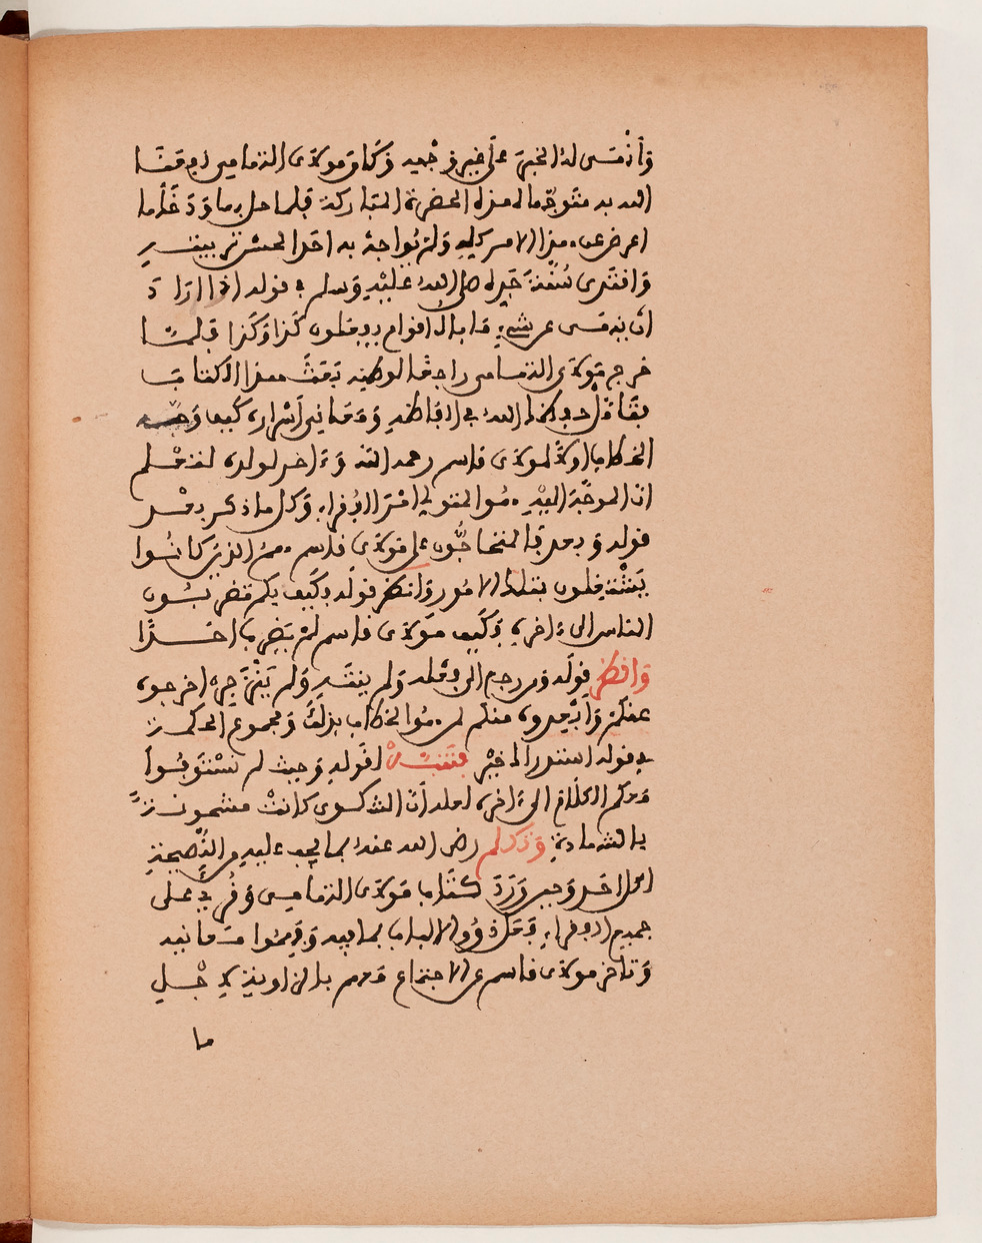 وَأَنْهَى له الخبر على غير وجهه وَكان مولاي التهامي أبقى
الله به متوجها لهذه الحضرة المباركة فلما حل بها وَدخلها
اعرض عن هذا الامر كله وَلم يواجه به احدا لحسن تربيته
وَاقتدى سُنة جده صلى الله عليه وَسلم في قوله اذا ارادَ
أن ينهى عن شيء ما بال أقوام يفعلون كذا وَكذا فلما
خرج مَولاي التهامي راجعا لوطنه بَعث بهذا الكتاب
فتأمل حفظك الله في ألفاظه وَمعاني أسراره كيف وجه
الخطاب اولا لمولاي قاسم رحمه الله وَءاخر لولده لتعلم
ان الموجه اليه هُو المتولي امر الفقراء وَكل ما ذكر بعد
قوله وَبعد فالمتحابون على مولاي قاسم هم الذين كانُوا
يَشتغلون بتلك الامُور وَانظر قوله وَكيف بكم تضربُون
الناس الى ءاخره وَكيف مَولاي قاسم لم يَضرب احدًا
وَانظر قوله وَمن رجع الى فعله وَلم ينته وَلم يَنْزجر اخرجوه
عنكم وَابعدوه منكم لمن هُو الخطاب بذلك وَمجموع الحكمة
في قوله استدر المخير فتنبه لقوله وَحيث لم تستوفُوا
معكم الكلام الى ءاخره لعله أن الشكوى كانت مشحونة
بالشهادة وَتكلم رضي الله عنه بما يجب عليه من النصيحة
لكل احد وَحين وَرَدَ كتاب مَولاي التهامي وَقُرئ على
جميع الفقراء فعمل ذوُوا الالباب بما فيه وَفهمُوا معانيه
وَتأخر مولاي قاسم عن الاجتماع معهم بالزاوية لاجل
ما